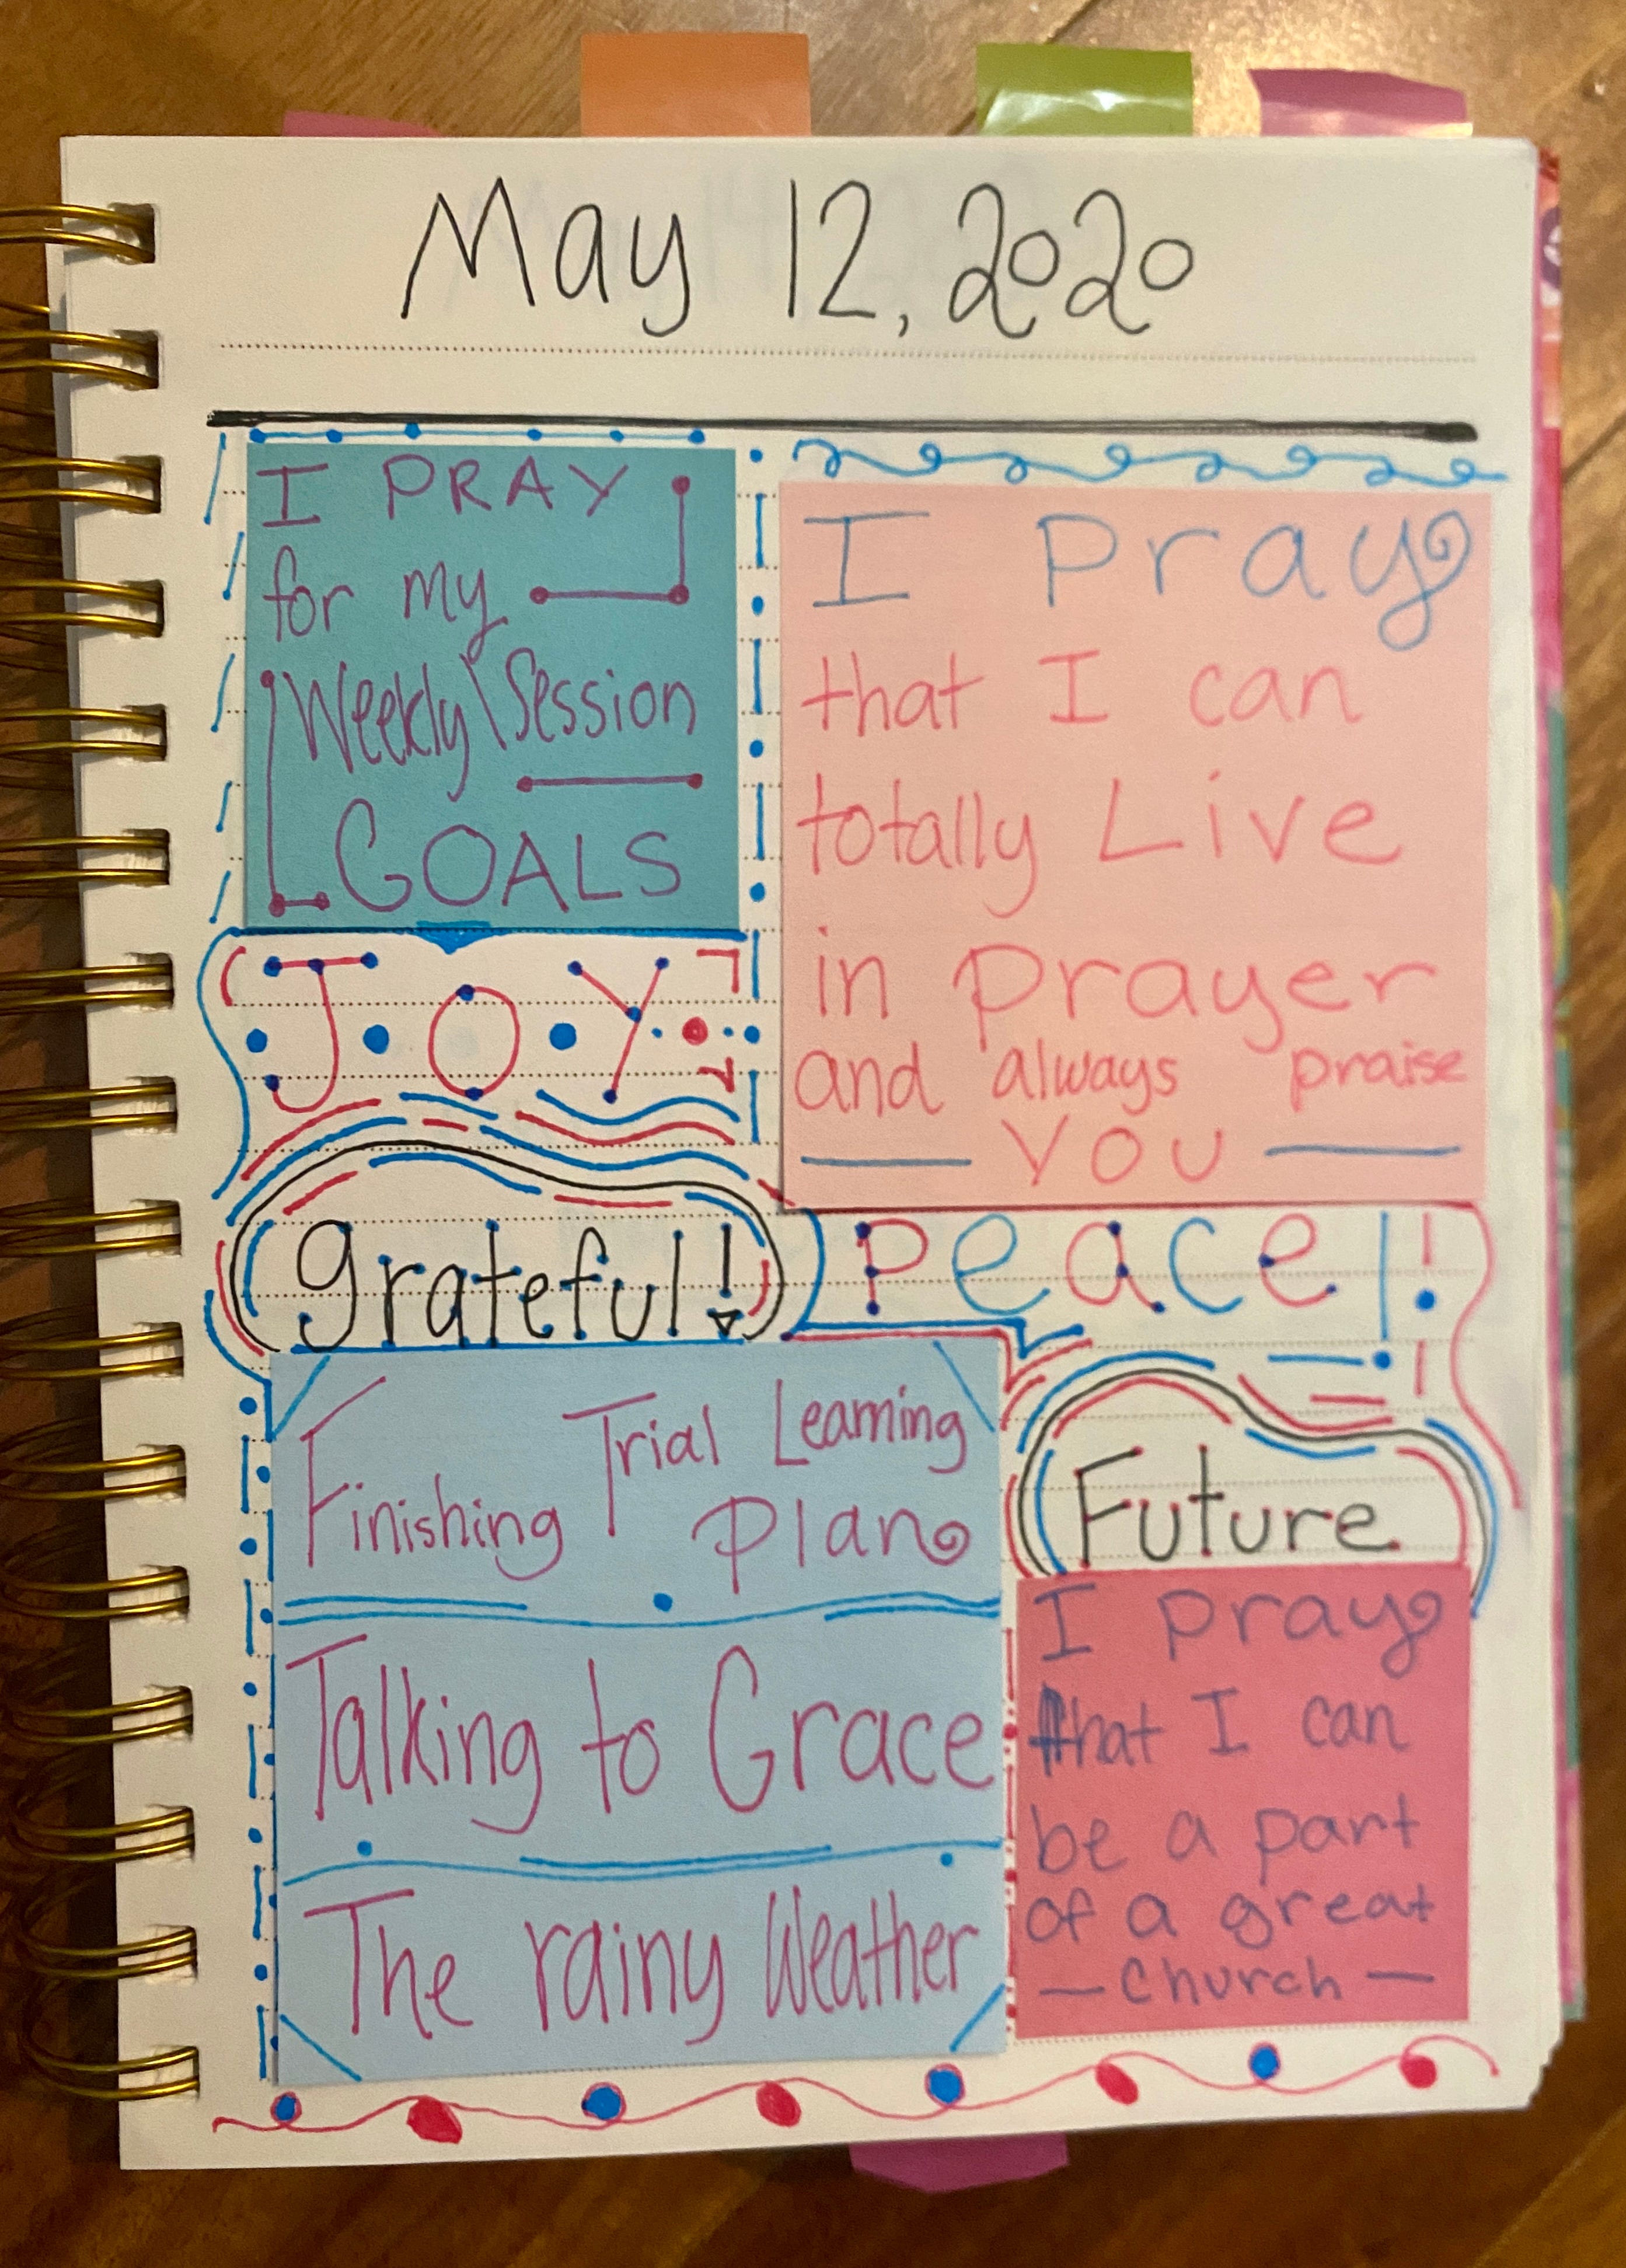 May 12, 2020
I PRAY
for my
Weekly Session
GOALS
I Pray
that I can
totally Live
in prayer
and always praise
YOU
JOY
grateful!
Peace!
Finishing Trial Learning
Plan
Talking to Grace
The rainy Weather
Future
I pray
that I can
be a part
of a great
church